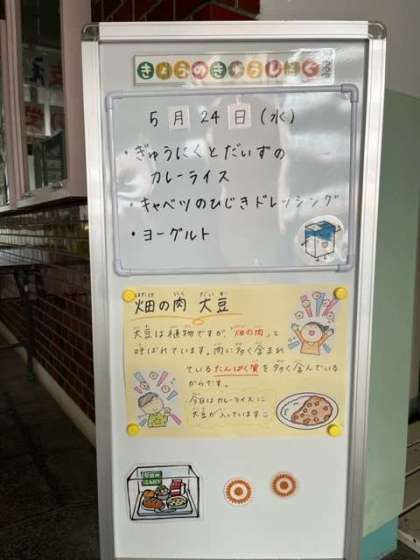 きょうのきゅうしょく
5月24日(水)
・ぎゅうにくとだいずの
カレーライス
・キャベツのひじきドレッシング
・ヨーグルト
はたけ にく だいず
畑の肉 大豆
大豆は植物ですが「畑の肉」と
呼ばれています。肉に多く含まれ
ているたんぱく質を多く含んでいる
からです。
今日はカレーライスに
大豆が入っています